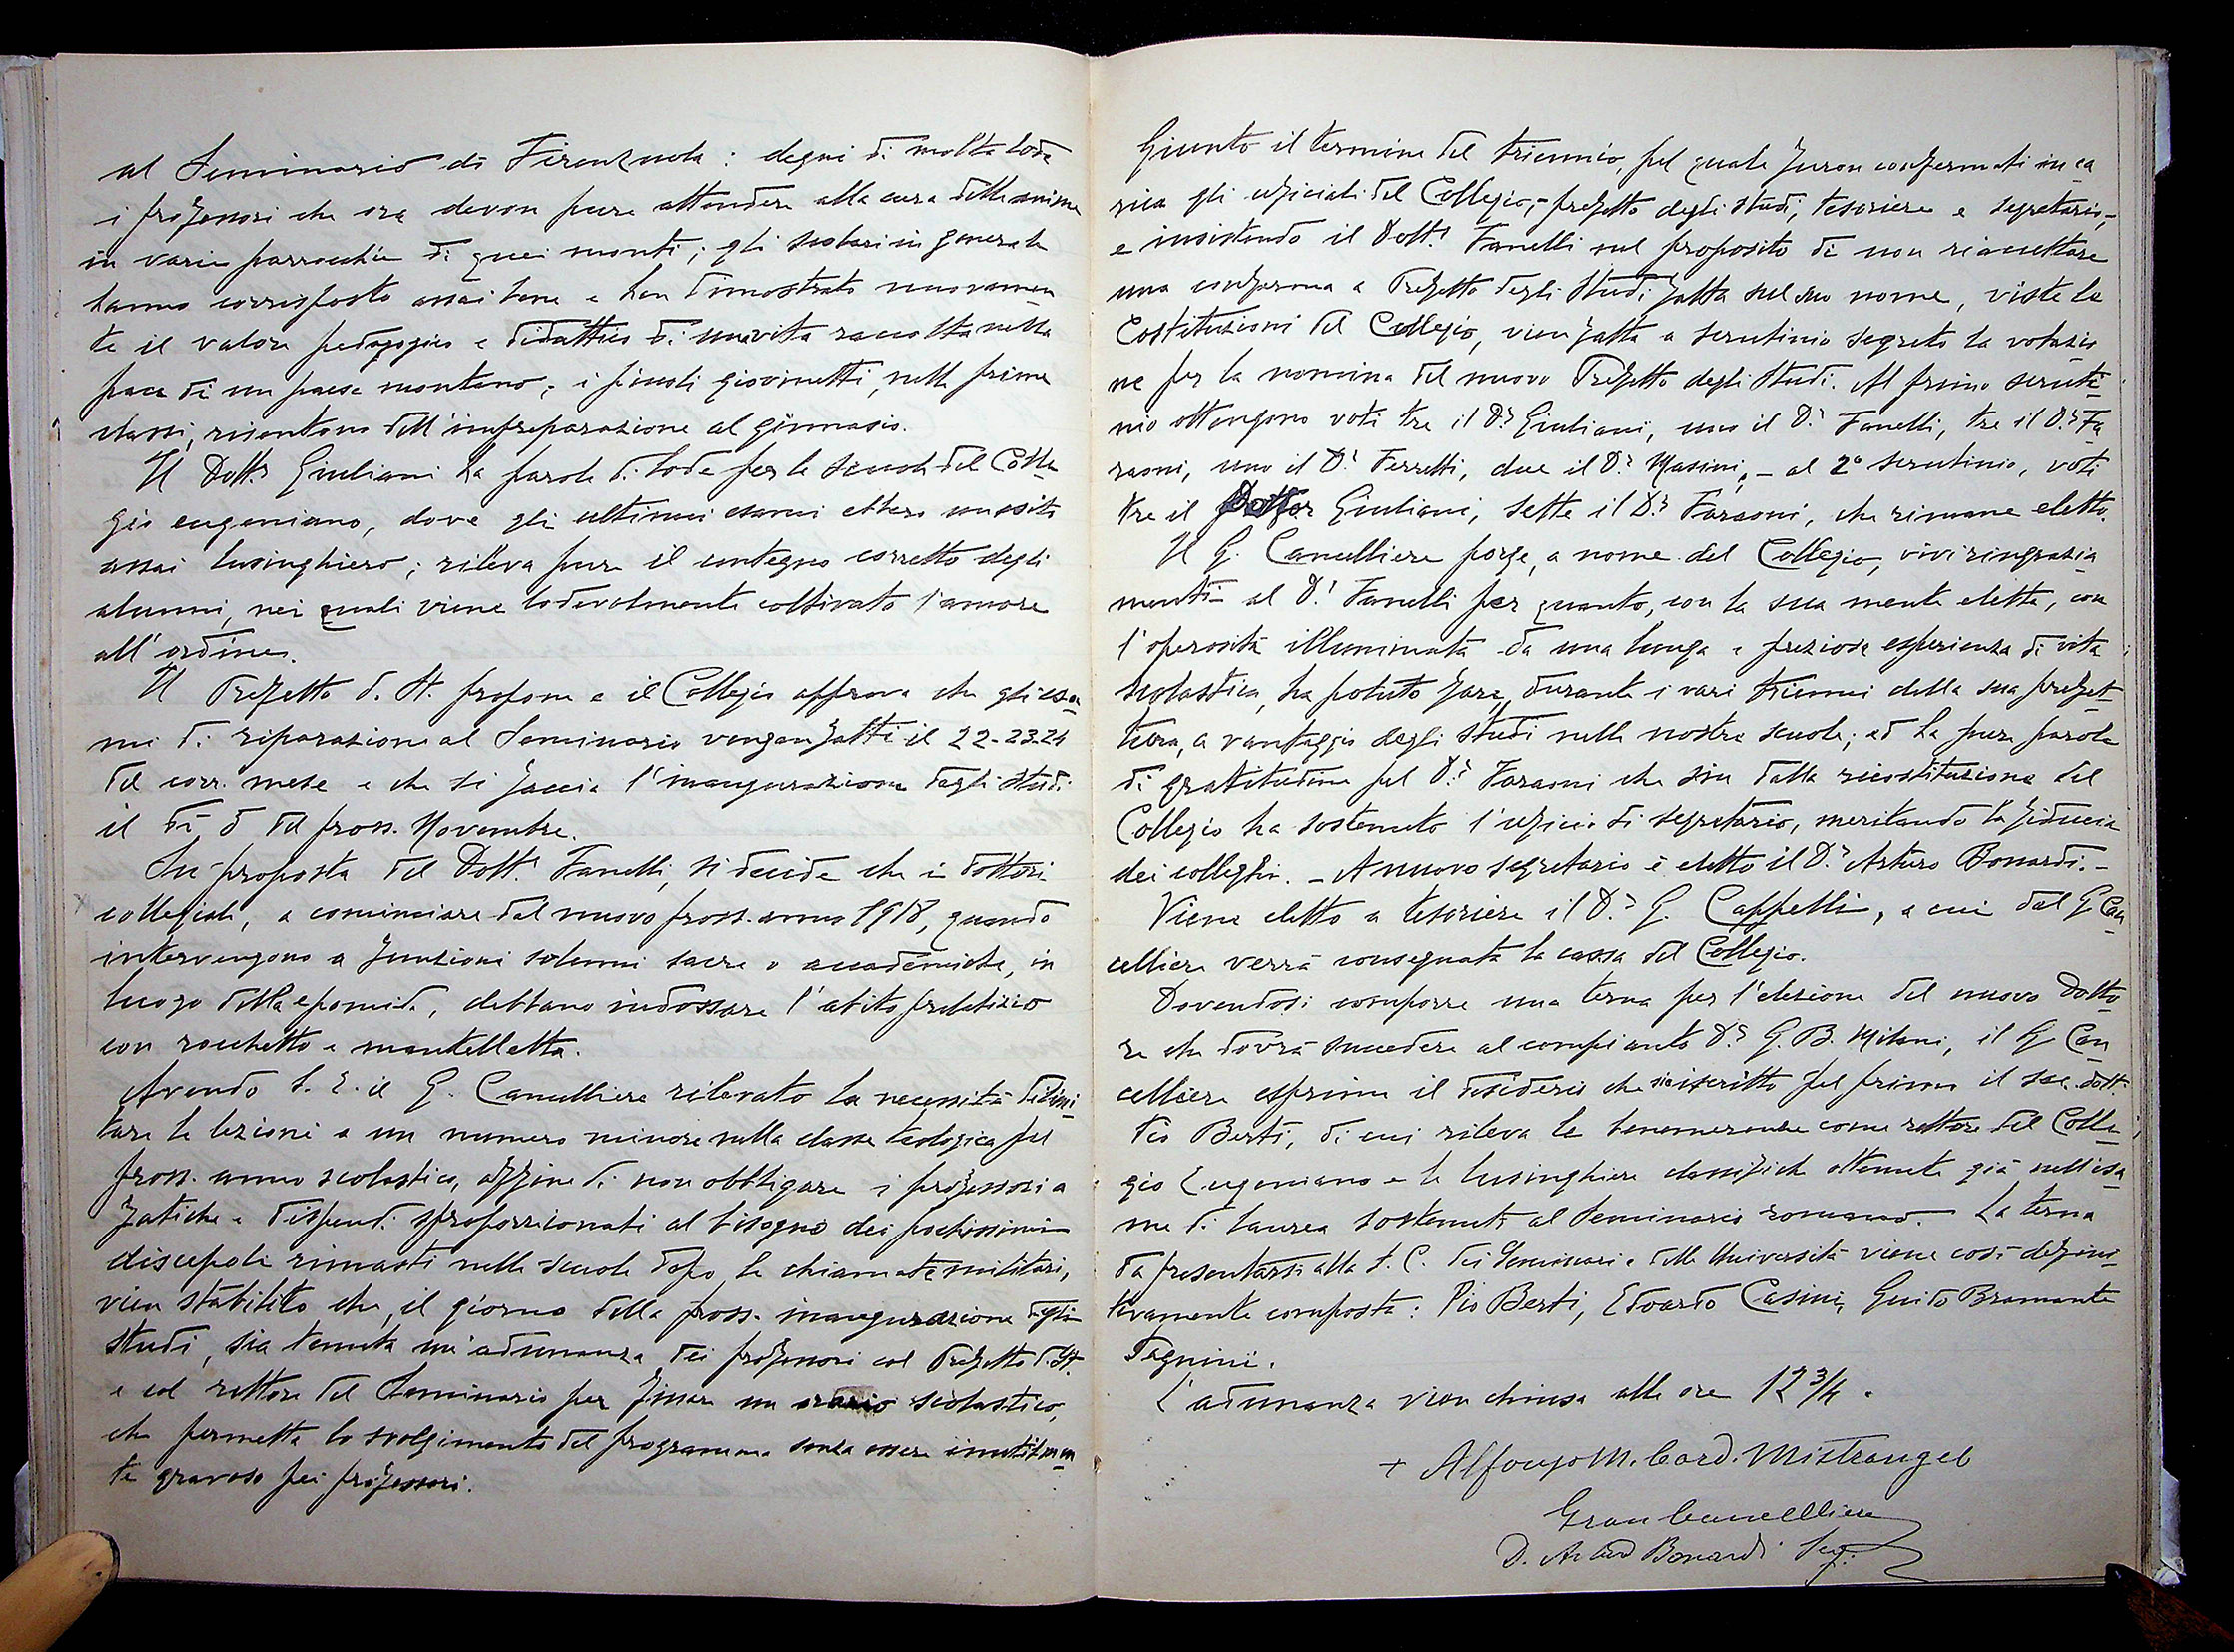 al Seminario di Firenzuola: degni di molta lode
i professori che ora devon pure attendere alla cura delle anime
in varie parrocchie di quei monti; gli scolari in generale
hanno corrisposto assai bene e han dimostrato nuovamen
te il valore pedagogico e didattico di una vita raccolta nella
pace di un paese montano; i piccoli giovinetti, nelle prime
classi, risentono dell'impreparazione al ginnasio.
Il Dott.r Giuliani ha parole di lode per le scuole del Colle
gio eugeniano, dove gli ultimi esami ebbero un esito
assai lusinghiero; rileva pure il contegno corretto degli
alunni, nei quali viene lodevolmente coltivato l'amore
all'ordine.
Il Prefetto d. St. propone e il Collegio approva che gli esa
mi di riparazione al Seminario vengan fatti il 22-23-24
del corr. mese e che si faccia l'inaugurazione degli studi
il dì 5 del pross. Novembre.
Su proposta del Dott.r Fanelli, si decide che i dottori
collegiali, a cominciare dal nuovo pross. anno 1918, quando
intervengono a funzioni solenni sacre o accademiche, in
luogo della epomide, debbano indossare l'abito prelatizio
con rocchetto e mantelletta.
Avendo S. E. il G. Cancelliere rilevato la necessità di limi
tare le lezioni a un numero minore nella classe teologica pel
pross. anno scolastico, affine di non obbligare i professori a
fatiche e dispendi sproporzionati al bisogno dei pochissimi
discepoli rimasti nelle scuole dopo le chiamate militari,
vien stabilito che, il giorno della pross. inaugurazione degli
studi, sia tenuta un'adunanza dei professori col Prefetto d. St.
e col rettore del Seminario per fissare un orario scolastico,
che permetta lo svolgimento del programma senza essere inutilmen
te gravoso pei professori.
Giunto il termine del triennio, pel quale furon confermati in ca
rica gli uficiali del Collegio, - prefetto degli studi, tesoriere e segretario, -
e insistendo il Dott.r Fanelli nel proposito di non riaccettare
una conferma a Prefetto degli Studi fatta sul suo nome, viste le
Costituzioni del Collegio, vien fatta a scrutinio segreto la votazio
ne per la nomina del nuovo Prefetto degli Studi. Al primo scruti
nio ottengono voti tre il D.r Giuliani, uno il D.r Fanelli, tre il D.r Fa
raoni, uno il D.r Ferretti, due il D.r Masini, - al 2° scrutinio, voti
tre il Giuliani, sette il D.r Faraoni, che rimane eletto.
Il G. Cancelliere porge, a nome del Collegio, vivi ringrazia
menti al D.r Fanelli per quanto, con la sua mente eletta, con
l'operosità illuminata da una lunga e preziosa esperienza di vita
scolastica, ha potuto fare, durante i vari trienni della sua prefet
tura, a vantaggio degli studi nelle nostre scuole; ed ha pure parole
di gratitudine pel D.r Faraoni che sin dalla ricostituzione del
Collegio ha sostenuto l'uficio di segretario, meritando la fiducia
dei colleghi. - A nuovo segretario è eletto il D.r Arturo Bonardi. -
Viene eletto a tesoriere il D.r G. Cappelli, a cui dal G. Can
celliere verrà consegnata la cassa del Collegio.
Dovendosi comporre una terna per l'elezione del nuovo Dotto
re che dovrà succedere al compianto D.r G. B. Milani, il G. Can
celliere esprime il desiderio che sia iscritto pel primo il sac. dott.
Pio Berti, di cui rileva le benemerenze come rettore del Colle
gio Eugeniano e le lusinghiere classifiche ottenute già nell'esa
me di laurea sostenuto al Seminario romano. La terna
da presentarsi alla S. C. dei Seminari e delle Università viene così defini
tivamente composta: Pio Berti, Edoardo Casini, Guido Bramante
Tognini.
L'adunanza vien chiusa alle ore 12 3/4.
+ Alfonso M. Card. Mistrangelo
Gran Cancelliere
D. Arturo Bonardi Seg.